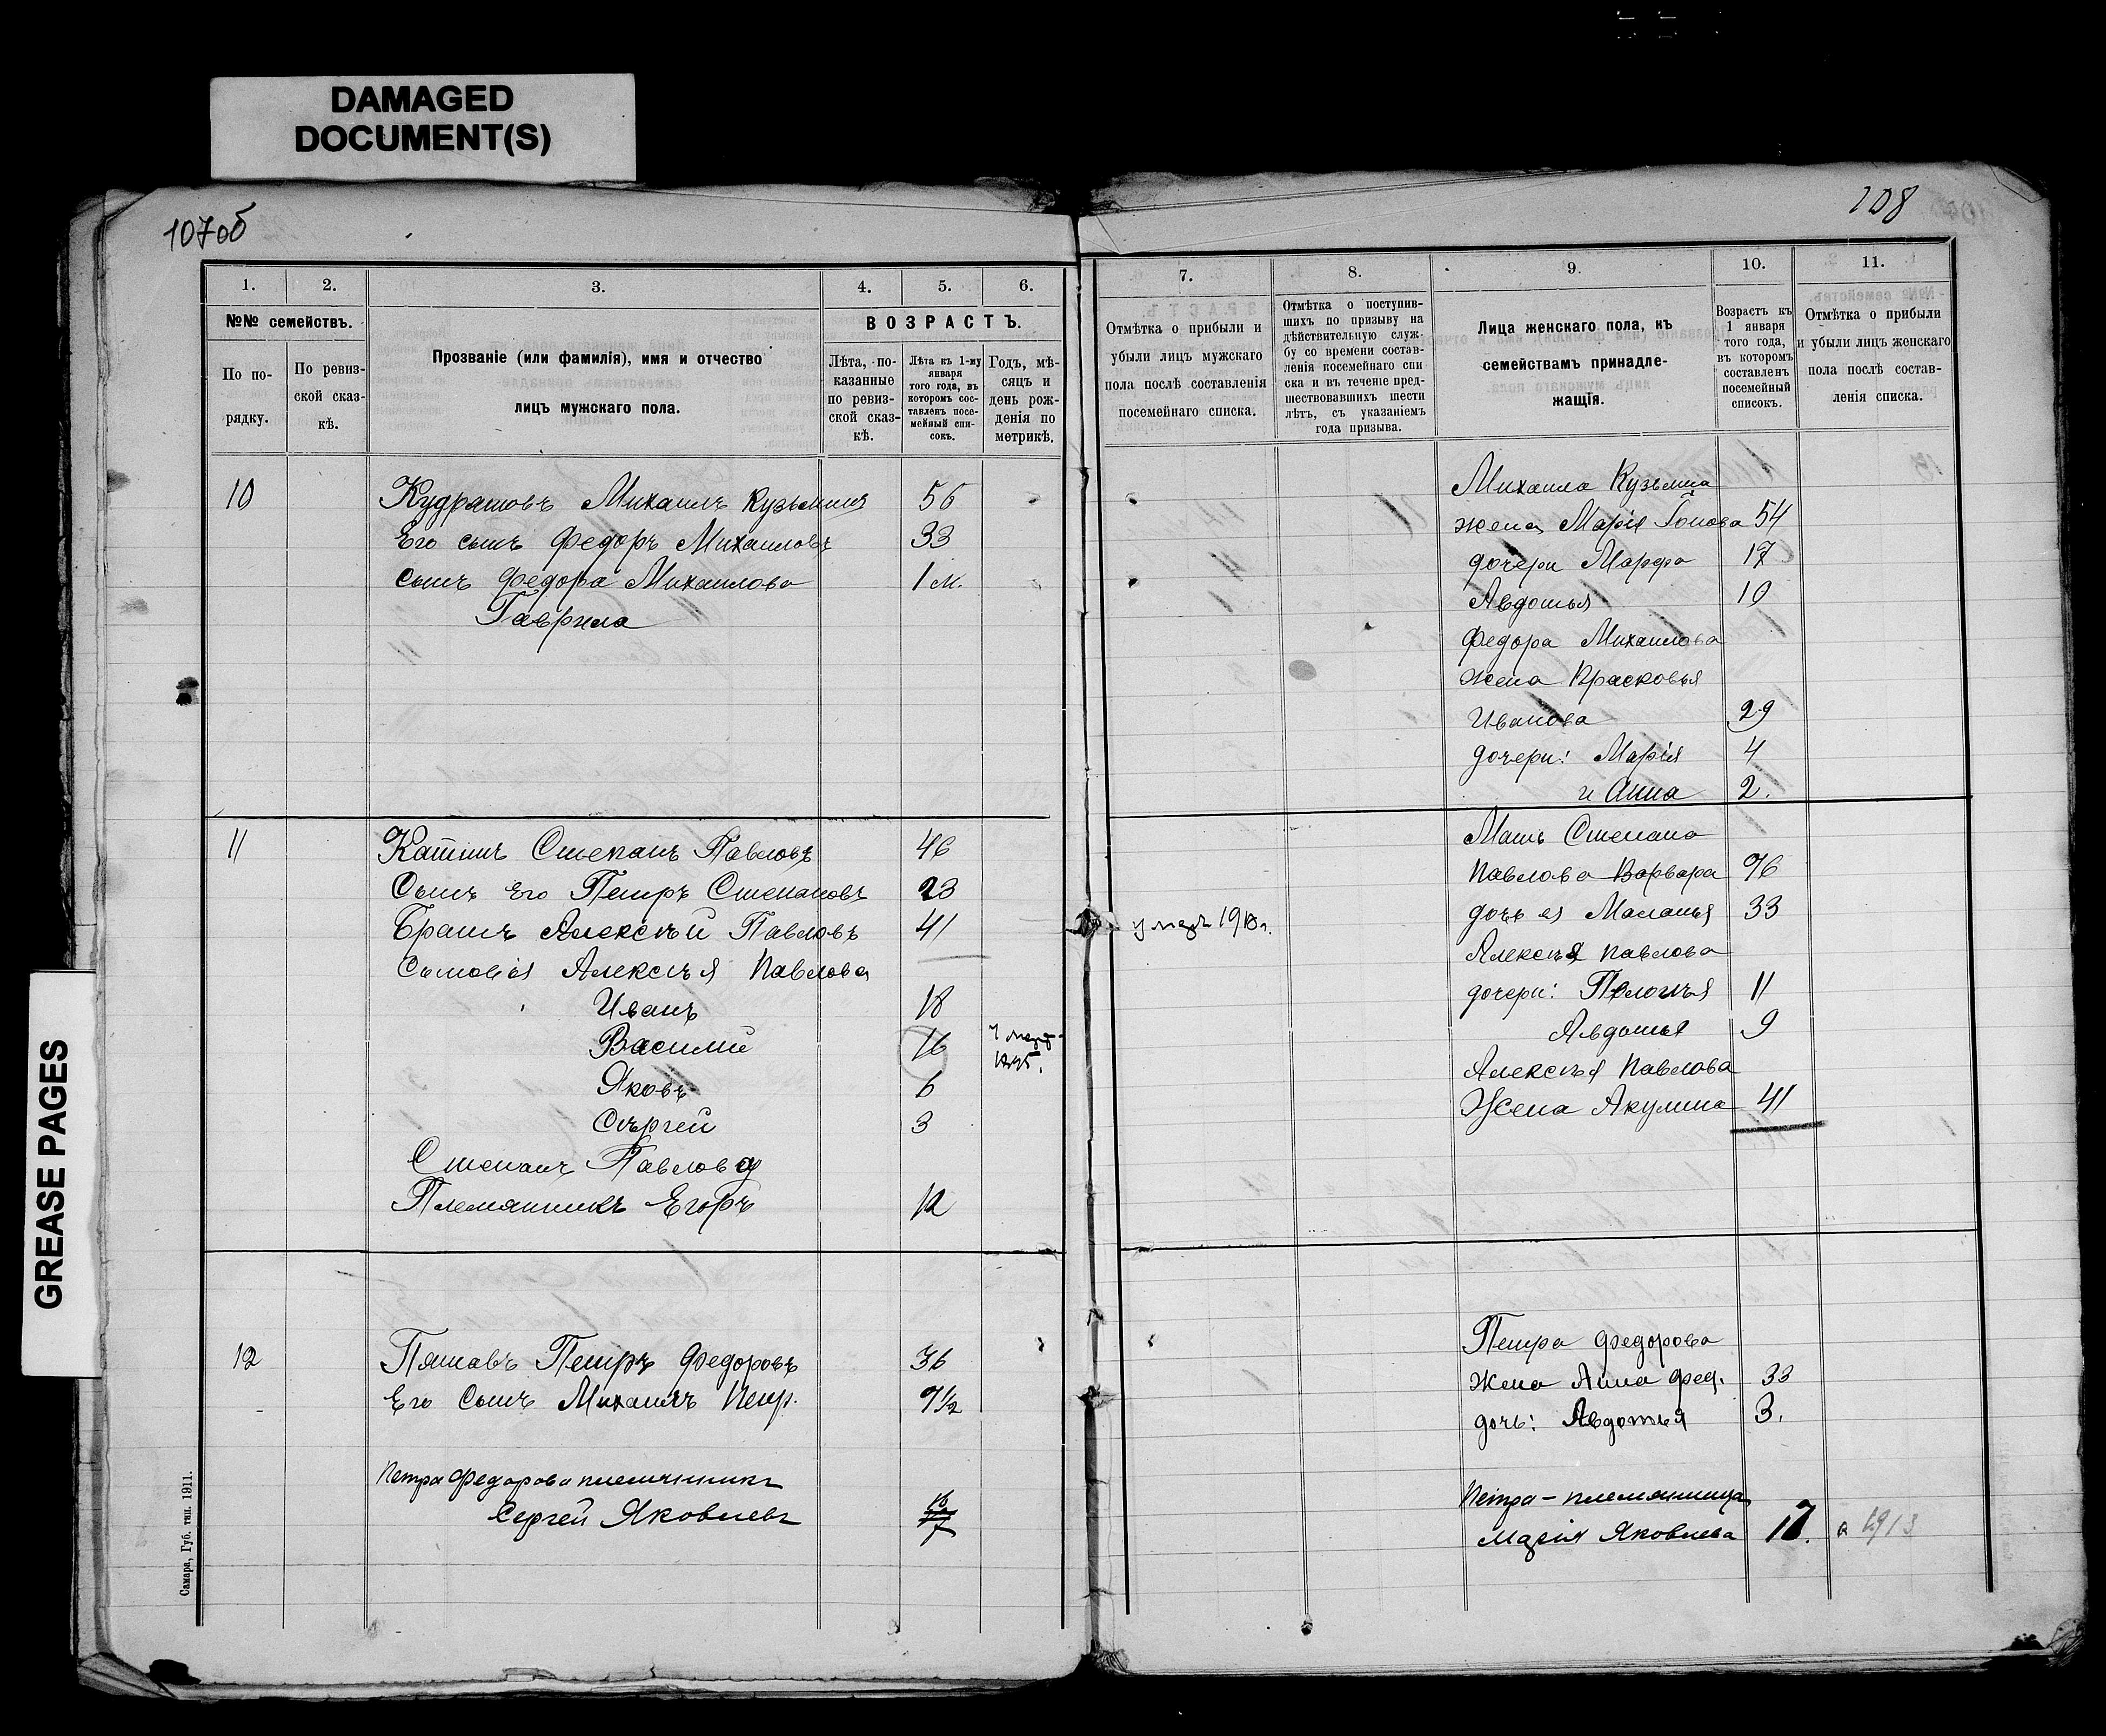 DAMAGED
DOCUMENT(S)
GREASE PAGES
107об
1.
2.
3.
4.
5.
6.
№№ семействъ.
ВОЗРАСТЪ.
По по-
рядку.
По ревиз-
ской сказ-
кѣ.
Прозваніе (или фамилія), имя и отчество
лицъ мужскаго пола.
Лѣта, по-
казанные
по ревиз-
ской сказ-
кѣ.
Лѣта къ 1-му
января
того года, въ
которомъ сос-
тавленъ посе-
мейный спи-
сокъ.
Годъ, мѣ-
сяцъ и
день рож-
денія по
метрикѣ.
10 Михаилъ Кузьминъ 56
Его сынъ Федоръ Михаиловъ 33
Сынъ Федора Михаилова 1 м.
Гаврила
11 Степанъ Павловъ 46
Сынъ его Петръ Степановъ 23
Братъ Алексѣй Павловъ 41
Сыновья Алексѣя Павлова
Иванъ 18
Василий 16
Яковъ 6
Сѣргей 3
Степана Павлова
Племянникъ Егоръ 12
12 Петръ Федоровъ 36
Его Сынъ Михаилъ Петр. 9½
Петра Федорова племянникъ
Сергей Яковлевъ
Самара, Губ. тип. 1911.
108
7.
8.
9.
10.
11.
Отмѣтка о прибыли и
убыли лицъ мужскаго
пола послѣ составленія
посемейнаго списка.
Отмѣтка о поступив-
шихъ по призыву на
дѣйствительную служ-
бу со времени состав-
ленія посемейнаго спи
ска и въ теченіе пред-
шествовавшихъ шести
лѣтъ, съ указаніемъ
года призыва.
Лица женскаго пола, къ
семействамъ принадле-
жащія.
Возрастъ къ
1 января
того года,
въ которомъ
составленъ
посемейный
списокъ.
Отмѣтка о прибыли
и убыли лицъ женскаго
пола послѣ состав-
ленія списка.
Михаила Кузьмина
жена Марія 54
дочери Марфа 17
Авдотья 10
Федора Михаилова
жена Прасковья
Иванова 29
дочери: Марія 4
и Анна 2.
Мать Степана
Павлова Варвара 76
дочь ея Маланья 33
Алексѣя Павлова
дочери: Пелагѣя 11
Авдотья 9
Алексѣя Павлова
Жена Акулина 41
Петра Федорова
жена Анна Фед. 33
дочь: Авдотья 3.
Петра - племянница
Марія Яковлева 1913